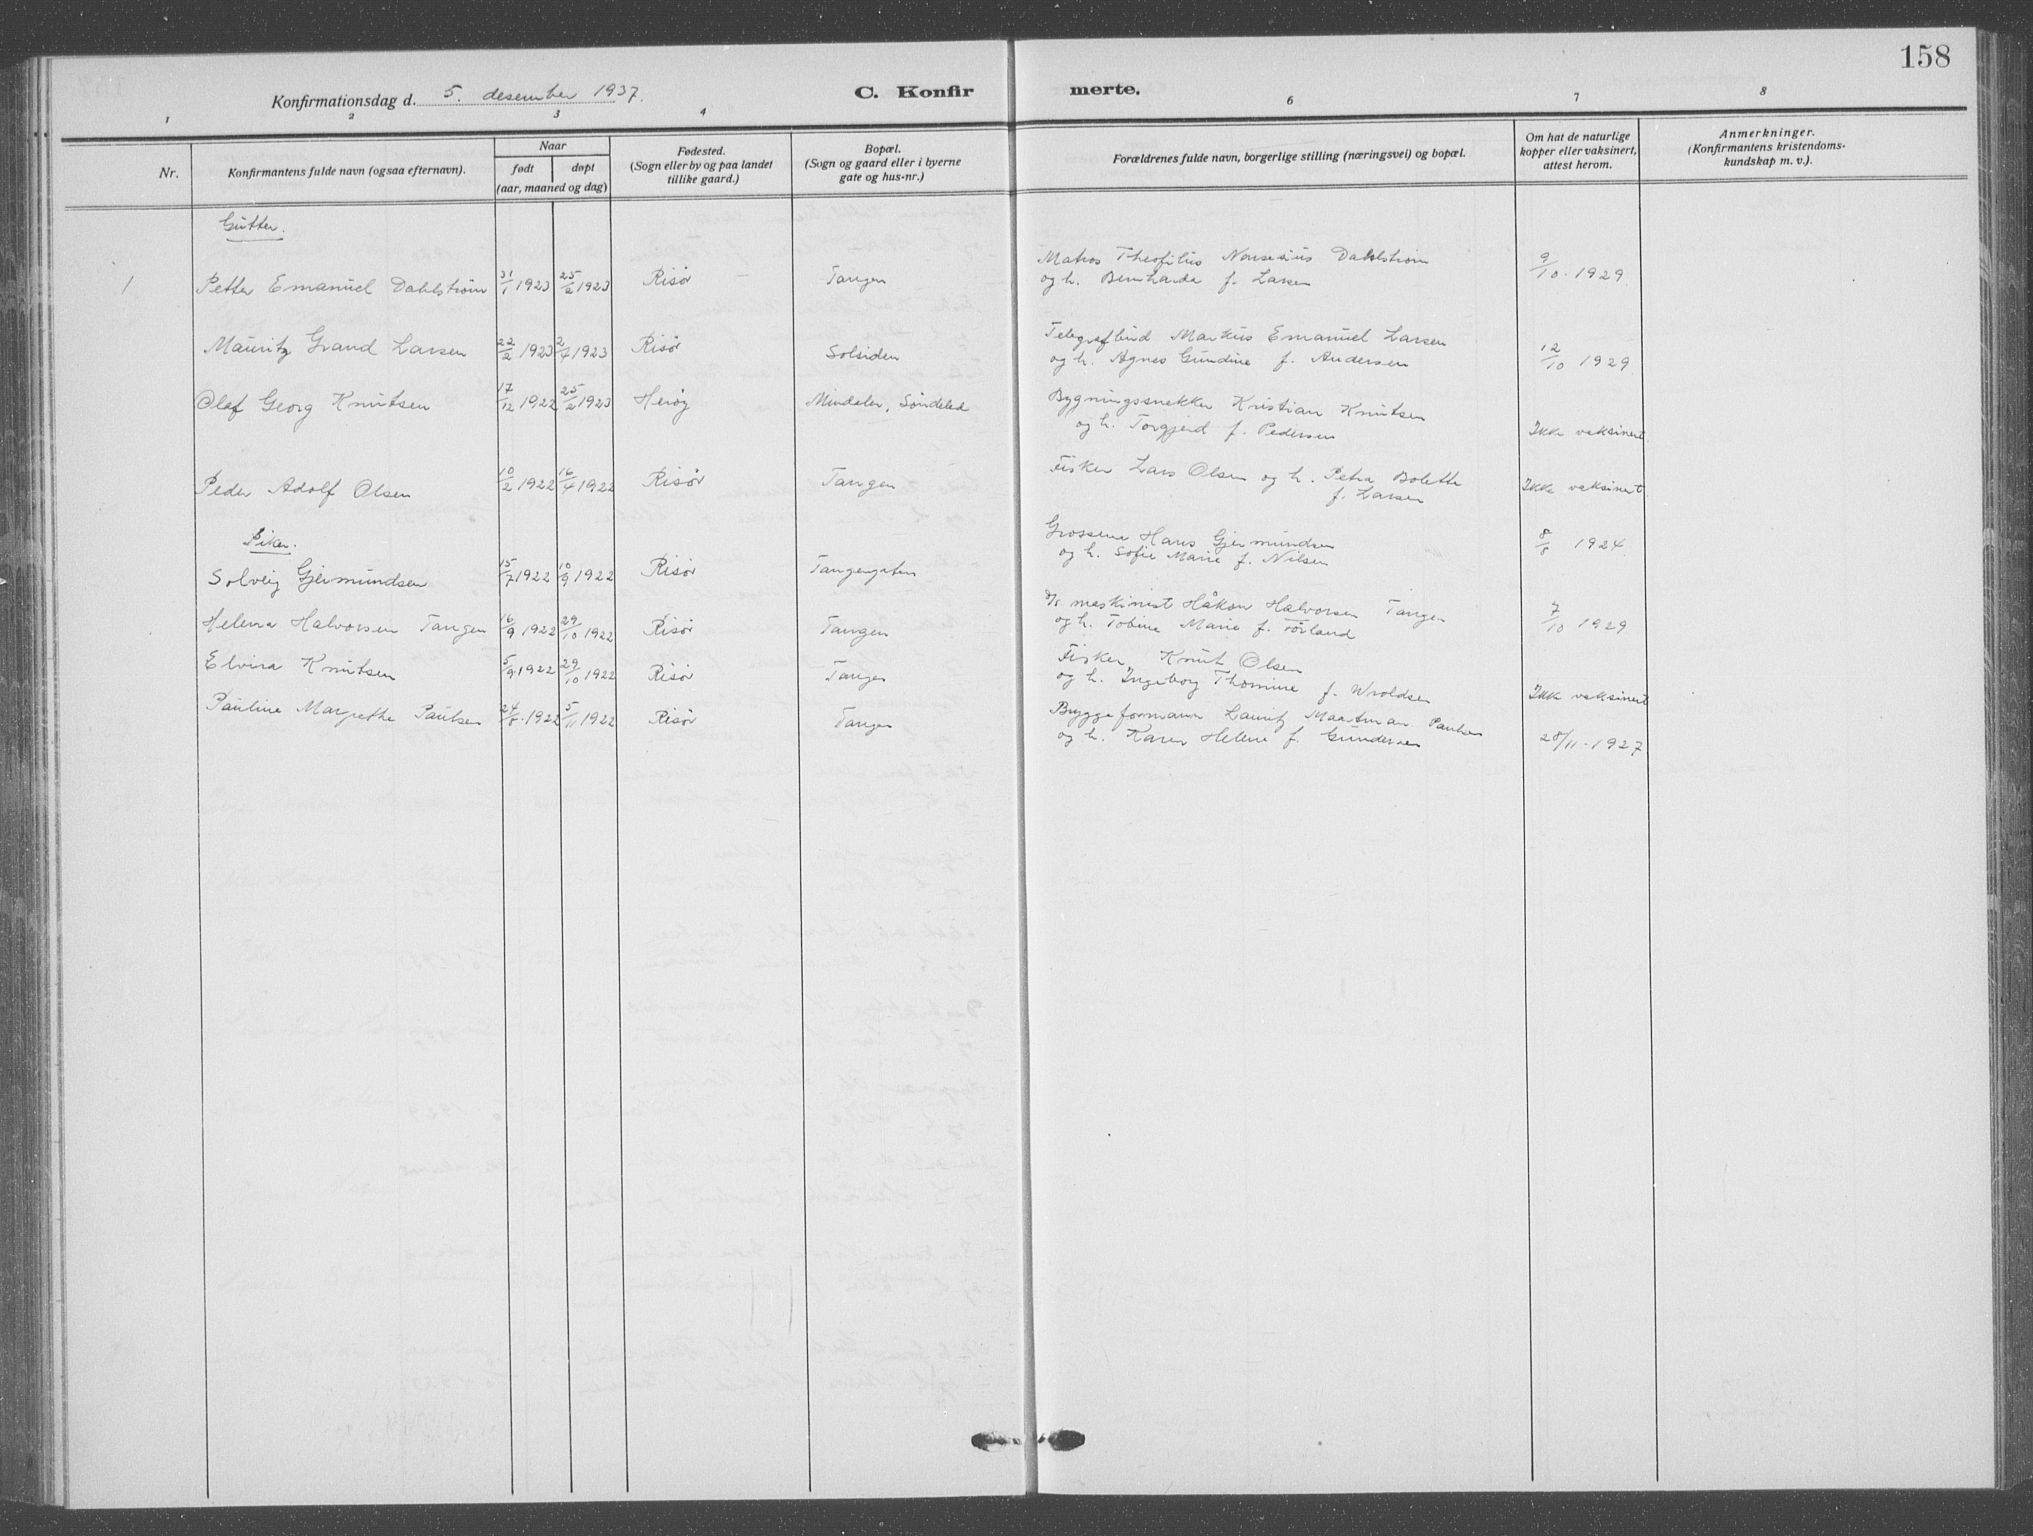 158
Konfirmationsdag d. 5. desember 1937.
C. Konfir
merte.
1 2 3 4 6 7 8
Nr.
Konfirmantens fulde navn (ogsaa efternavn).
Naar
født døpt
(aar, maaned og dag)
Fødested.
(Sogn eller by og paa landet
tillike gaard.)
Bopæl.
(Sogn og gaard eller i byerne
gate og hus-nr.)
Forældrenes fulde navn, borgerlige stilling (næringsvei) og bopæl.
Om hat de naturlige
kopper eller vaksinert,
attest herom.
Anmerkninger.
(Konfirmantens kristendoms-
kundskap m. v.).
Gutter.
1 Petter Emanuel Dahlstrøm 31/1 1923 25/2 1923 Risør Tangen Matros Theofilus Dahlstrøm 9/10. 1929
og h. Bernharda f. Larsen
Mauritz Grand Larsen 22/2 1923 2/4 1923 Risør Solsiden Telegrafbud Markus Emanuel Larsen
og h. Agnes Gundine f. Andersen 12/10 1929
Olaf Georg Knutsen 17/12 1922 25/2 1923 Herøy Mindalen, Søndeled Bygningssnekker Kristian Knutsen
og h. Torgjerd f. Pedersen Ikke vaksinert
Peder Adolf Olsen 10/2 1922 16/4 1922 Risør Tangen Fisker Lars Olsen og h. Petra Bolette
f. Larsen Ikke vaksinert
Piker.
Solveig Gjermundsen 15/7 1922 10/9 1922 Risør Tangengaten Hans Gjermundsen
og h. Sofie Marie f. Nilsen 8/8 1924
Helena Halvorsen Tangen 16/9 1922 29/10 1922 Risør Tangen maskinist Håkon Halvorsen Tangen
og h. Tobine Marie f. Førland 7/10 1929
Elvira Knutsen 5/9. 1922 29/10 1922 Risør Tangen Fisker Knut Olsen
og h. Ingeborg Thomine f. Wroldsen Ikke vaksinert
Pauline Margrethe Paulsen 24/8. 1922 5/11 1922 Risør Tangen Byggeformann Lauritz Maartman Paulsen
og h. Karen Helene f. Gundersen 28/11. 1927